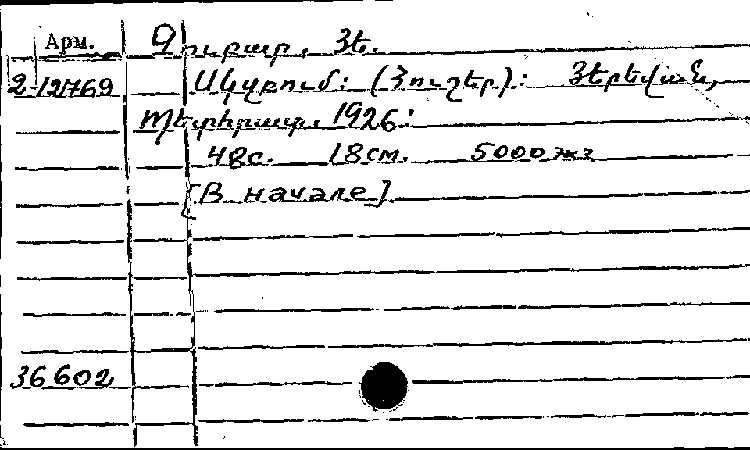 Арм.
2-12769
Զուբար, Յե.
Սկզբում: (Հուշեր): Յերեվան,
Պետհրատ, 1926:
48с. 18см. 5000 экз
[В начале]
36602